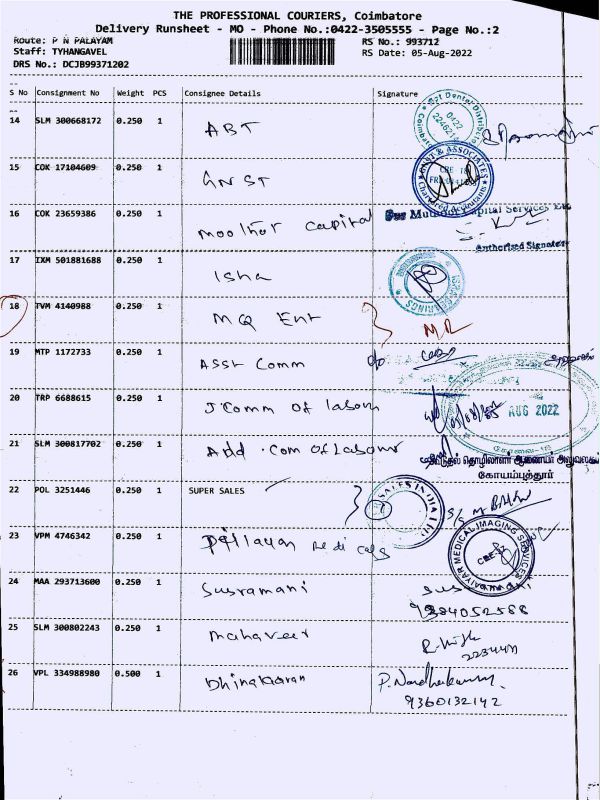 THE PROFESSIONAL COURIERS, Coimbatore
Delivery Runsheet - MO - Phone No.:0422-3505555 - Page No.:2
Route: P N PALAYAM RS No.: 993712
Staff: TYHANGAVEL RS Date: 05-Aug-2022
DRS No.: DCJB99371202
S No Consignment No Weight PCS Consignee Details Signature
14 SLM 300668172 0.250 1 ABT
15 COK 17104609 0.250 1 GNST
& ASSOCIATES
Chartered Accountants
16 COK 23659386 0.250 1 Moolhot Capital
Capital Services
Authorised Signatory
17 IXM 501881688 0.250 1 Isha
18 TVM 4140988 0.250 1 MQ Ent
19 MTP 1172733 0.250 1 Asst Comm
20 TRP 6688615 0.250 1 J.Comm of labour
AUG 2022
21 SLM 300817702 0.250 1 Add .Com of Labour
தொழிலாளர் ஆணையர்
கோயம்புத்தூர்
22 POL 3251446 0.250 1 SUPER SALES
23 VPM 4746342 0.250 1
MEDICAL IMAGING SERVICES
24 MAA 293713600 0.250 1 Susramani
9384052588
25 SLM 300802243 0.250 1 Mahaveer
26 VPL 334988980 0.500 1 Dhinakaran
9360132142